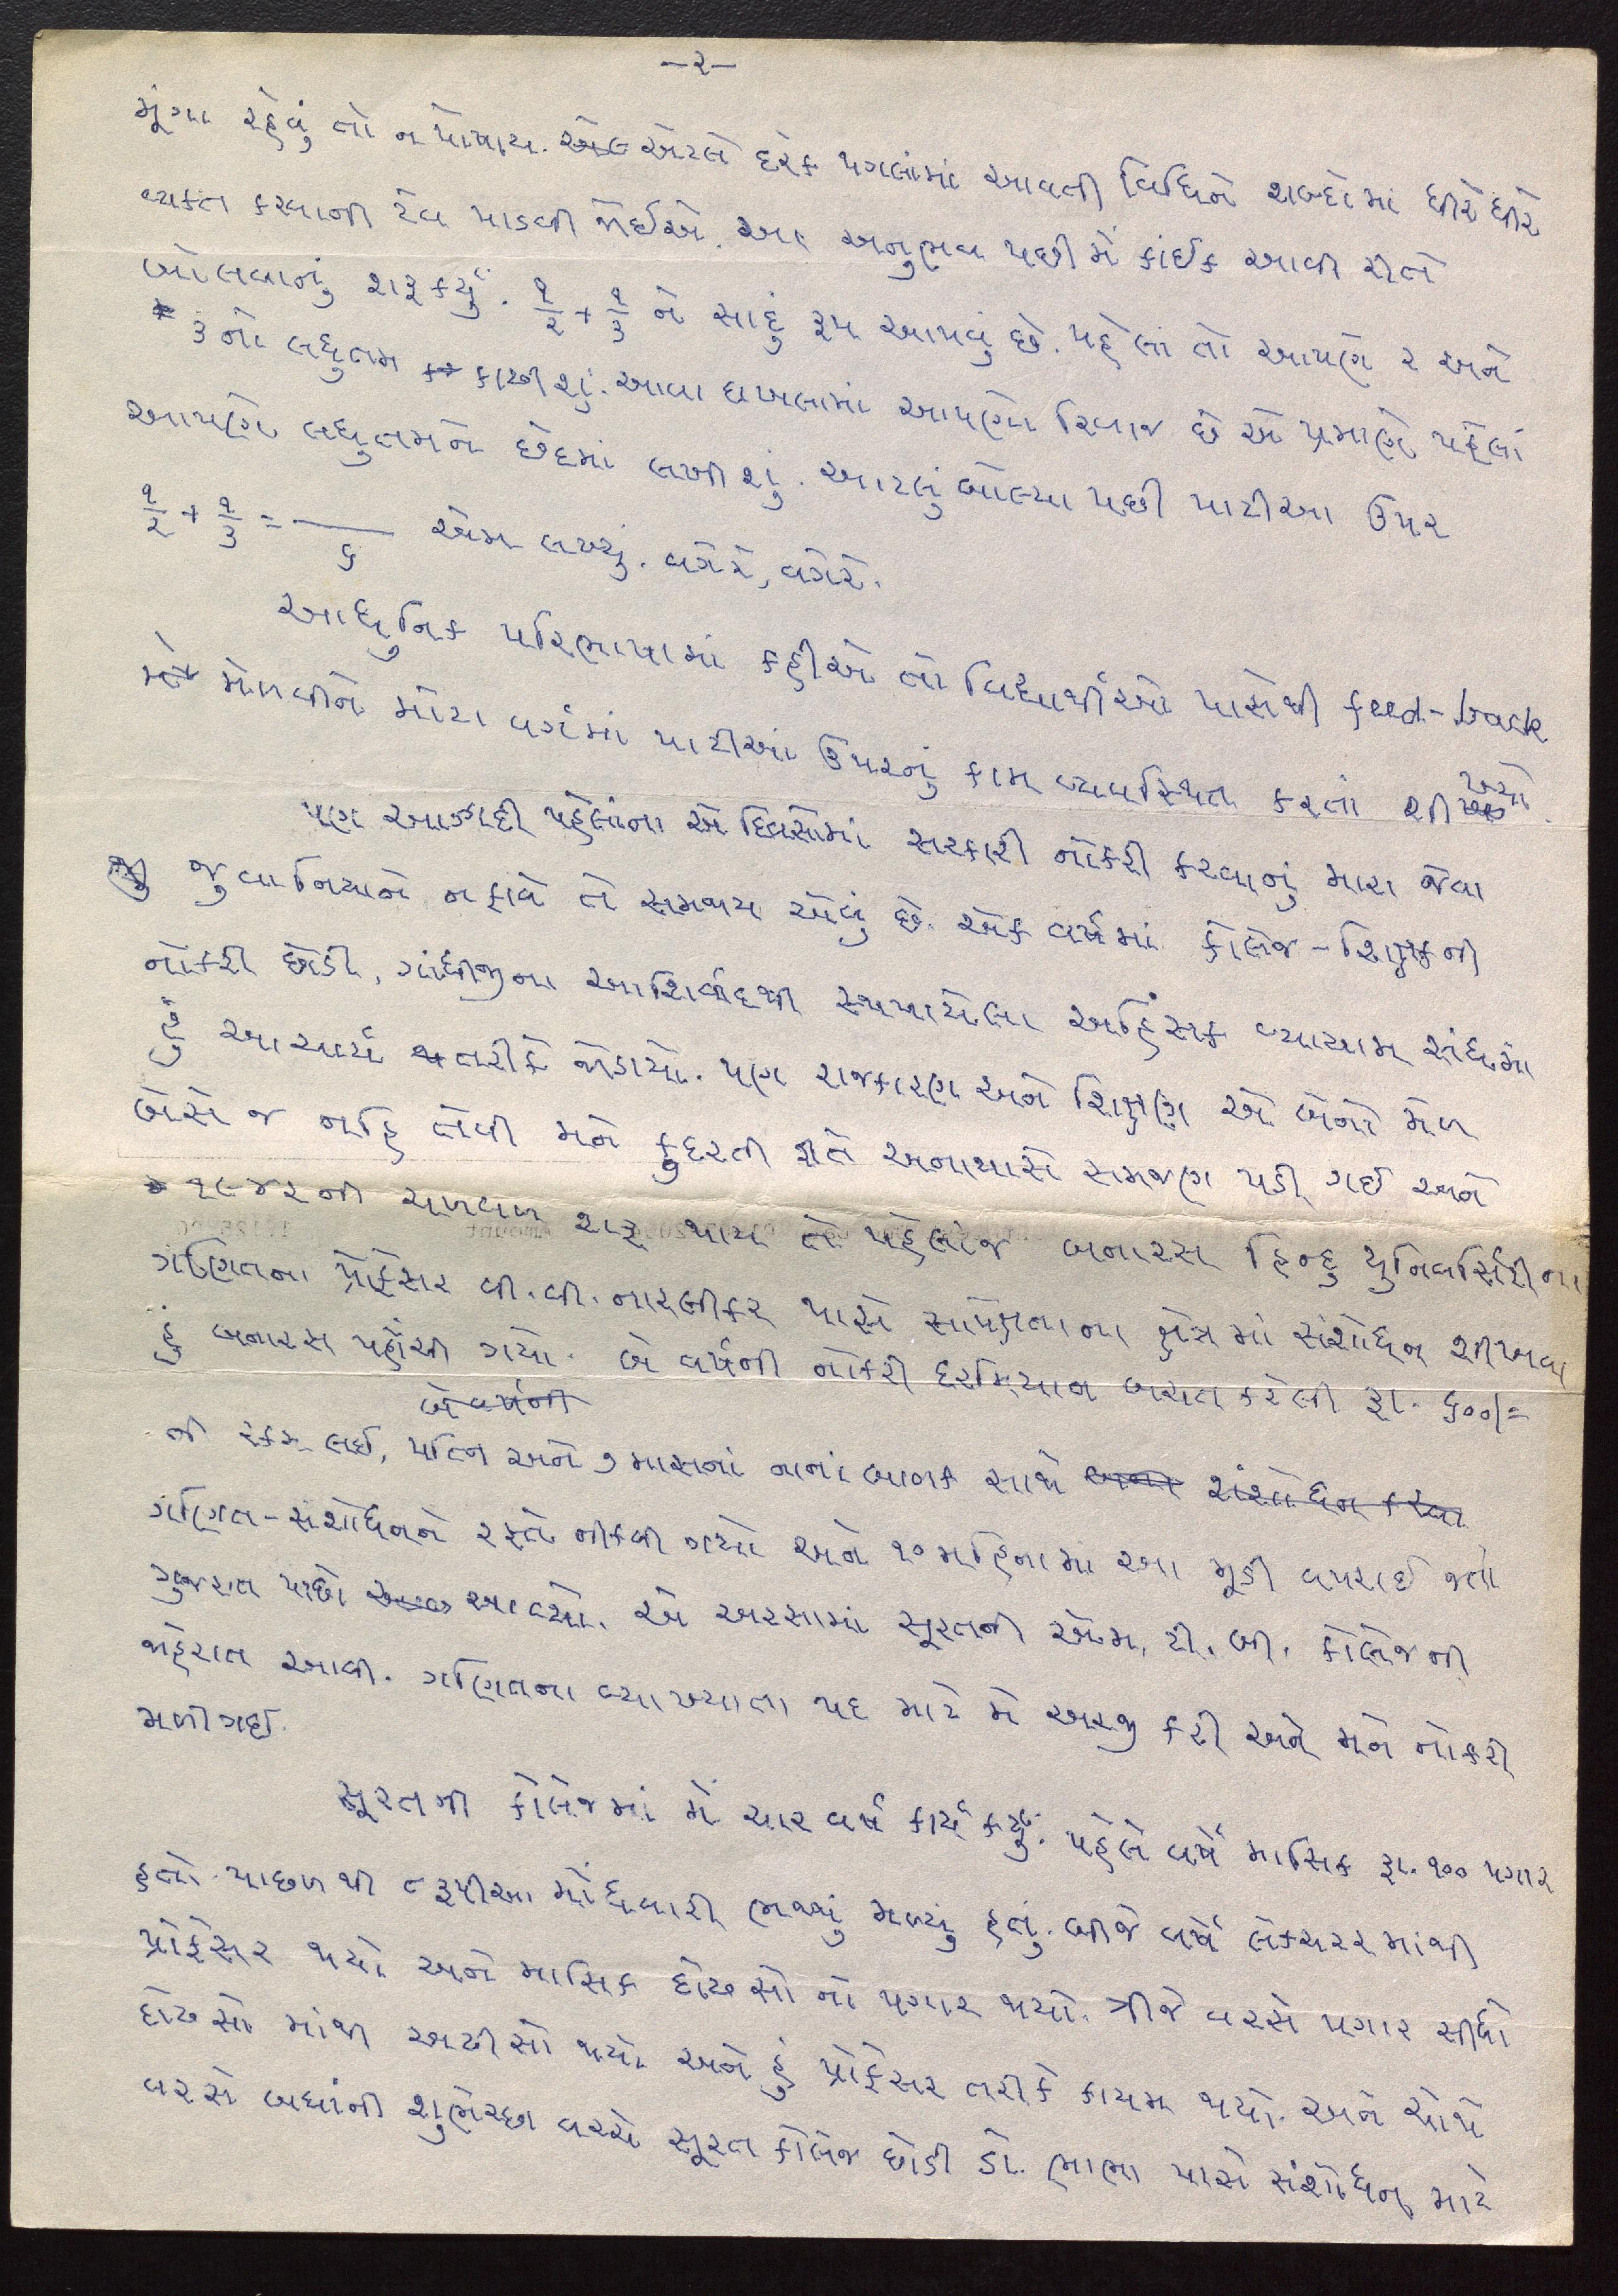 -૨-
મૂંગા રહેવું તો ન પોષાય. એટલે દરેક પગલાંમાં આવતી વિધિને શબ્દોમાં ધીરે ધીરે
વ્યક્ત કરવાની ટેવ પાડવી જોઈએ. આ અનુભવ પછી મેં કાંઈક આવી રીતે
બોલવાનું શરૂ કર્યું. ૧/૨ + ૧/૩ ને સાદું રૂપ આપવું છે. પહેલાં તો આપણે ૨ અને
૩ નો લઘુતમ કાઢીશું. આવા દાખલામાં આપણો રિવાજ છે એ પ્રમાણે પહેલાં
આપણે લઘુતમને છેદમાં લખીશું. આટલું બોલ્યા પછી પાટીઆ ઉપર
૧/૨ + ૧/૩ = —/૬ એમ લખ્યું. વગેરે, વગેરે.
આધુનિક પરિભાષામાં કહીએ તો વિદ્યાર્થીઓ પાસેથી feed-back
મેળવીને મોટા વર્ગમાં પાટીઆ ઉપરનું કામ વ્યવસ્થિત કરતાં શીખ્યો.
પણ આઝાદી પહેલાંના એ દિવસોમાં સરકારી નોકરી કરવાનું મારા જેવા
જુવાનિયાને ન ફાવે તે સમજાય એવું છે. એક વર્ષમાં કોલેજ-શિક્ષકની
નોકરી છોડી, ગાંધીજીના આશિર્વાદથી સ્થપાયેલા અહિંસક વ્યાયામ સંઘમાં
હું આચાર્ય તરીકે જોડાયો. પણ રાજકારણ અને શિક્ષણ એ બેનો મેળ
બેસે જ નહિ તેવી મને કુદરતી રીતે અનાયાસે સમજણ પડી ગઈ અને
૧૯૪૨ની ચળવળ શરૂ થાય તે પહેલાંજ બનારસ હિન્દુ યુનિવર્સિટીના
ગણિતના પ્રોફેસર વી. વી. નારલીકર પાસે સાપેક્ષતાના ક્ષેત્રમાં સંશોધન શીખવા
હું બનારસ પહોંચી ગયો. બે વર્ષની નોકરી દરમિયાન બચત કરેલી રૂા. ૬૦૦/=
બે વર્ષની
ની રકમ લઈ, પત્નિ અને ૭ માસનાં નાનાં બાળક સાથે સંશોધન કરવા
ગણિત-સંશોધનને રસ્તે નીકળી ગયો અને ૧૦ મહિનામાં આ મૂડી વપરાઈ જતાં
ગુજરાત પાછો આવ્યો. એ અરસામાં સૂરતની એમ. ટી. બી. કોલેજની
જાહેરાત આવી. ગણિતના વ્યાખ્યાતા પદ માટે મેં અરજી કરી અને મને નોકરી
મળી ગઈ.
સૂરતની કોલેજમાં મેં ચાર વર્ષ કાર્ય કર્યું. પહેલે વર્ષે માસિક રૂા. ૧૦૦ પગાર
હતો. પાછળથી ૮ રૂપીઆ મોંઘવારી ભથ્થું મળ્યું હતું. બીજે વર્ષે લેકચરરમાંથી
પ્રોફેસર થયો અને માસિક દોઢસોનો પગાર થયો. ત્રીજે વરસે પગાર સીધો
દોઢસોમાંથી અઢીસો થયો અને હું પ્રોફેસર તરીકે કાયમ થયો. અને ચોથે
વરસે બધાંની શુભેચ્છા વચ્ચે સૂરત કોલેજ છોડી ડો. ભાભા પાસે સંશોધન માટે